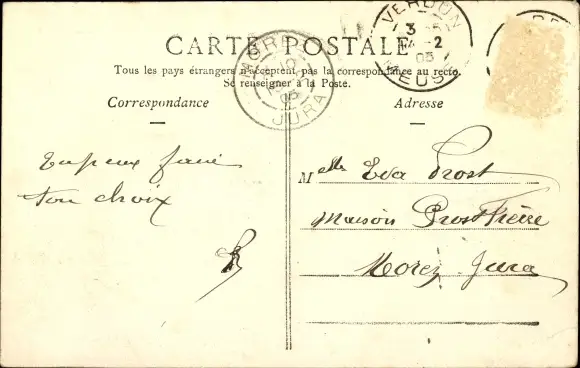 CARTE POSTALE
Tous les pays étrangers n'acceptent pas la correspondance au recto.
Se renseigner à la Poste.
Correspondance
Adresse
VERDUN
3
-2
03
MEUSE
MOREZ
03
JURA
Tu peux faire
ton choix
Melle Eva Prost
Maison Prost Frère
Morez Jura